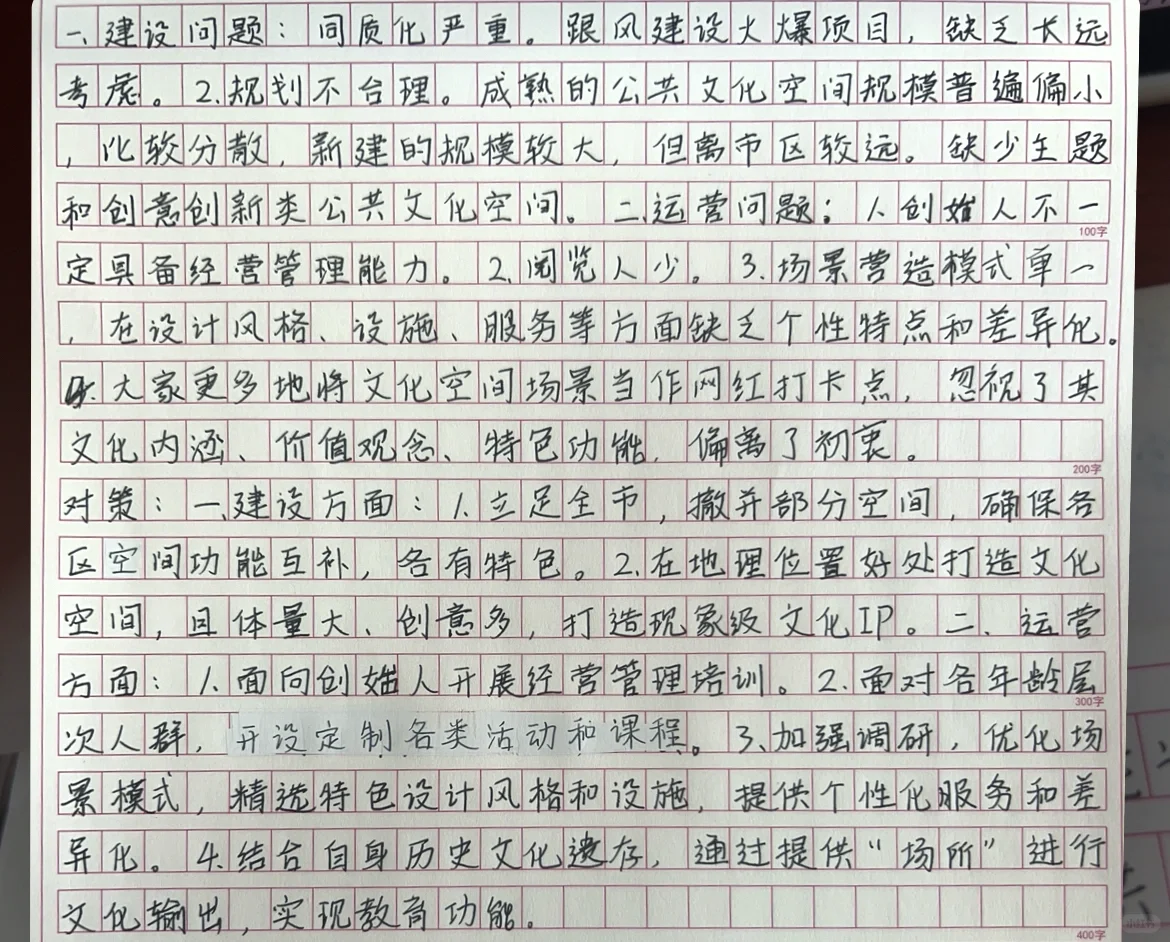 一、建设问题：同质化严重。跟风建设火爆项目，缺乏长远
考虑。2.规划不合理。成熟的公共文化空间规模普遍偏小
，比较分散，新建的规模较大，但离市区较远。缺少主题
和创意创新类公共文化空间。二、运营问题：1.创始人不一
100字
定具备经营管理能力。2.阅览人少。3.场景营造模式单一
，在设计风格、设施、服务等方面缺乏个性特点和差异化。
4.大家更多地将文化空间场景当作网红打卡点，忽视了其
文化内涵、价值观念、特色功能，偏离了初衷。
200字
对策：一、建设方面：1.立足全市，撤并部分空间，确保各
区空间功能互补，各有特色。2.在地理位置好处打造文化
空间，且体量大、创意多，打造现象级文化IP。二、运营
方面：1.面向创始人开展经营管理培训。2.面对各年龄层
300字
次人群，开设定制各类活动和课程。3.加强调研，优化场
景模式，精选特色设计风格和设施，提供个性化服务和差
异化。4.结合自身历史文化遗存，通过提供“场所”进行
文化输出，实现教育功能。
400字